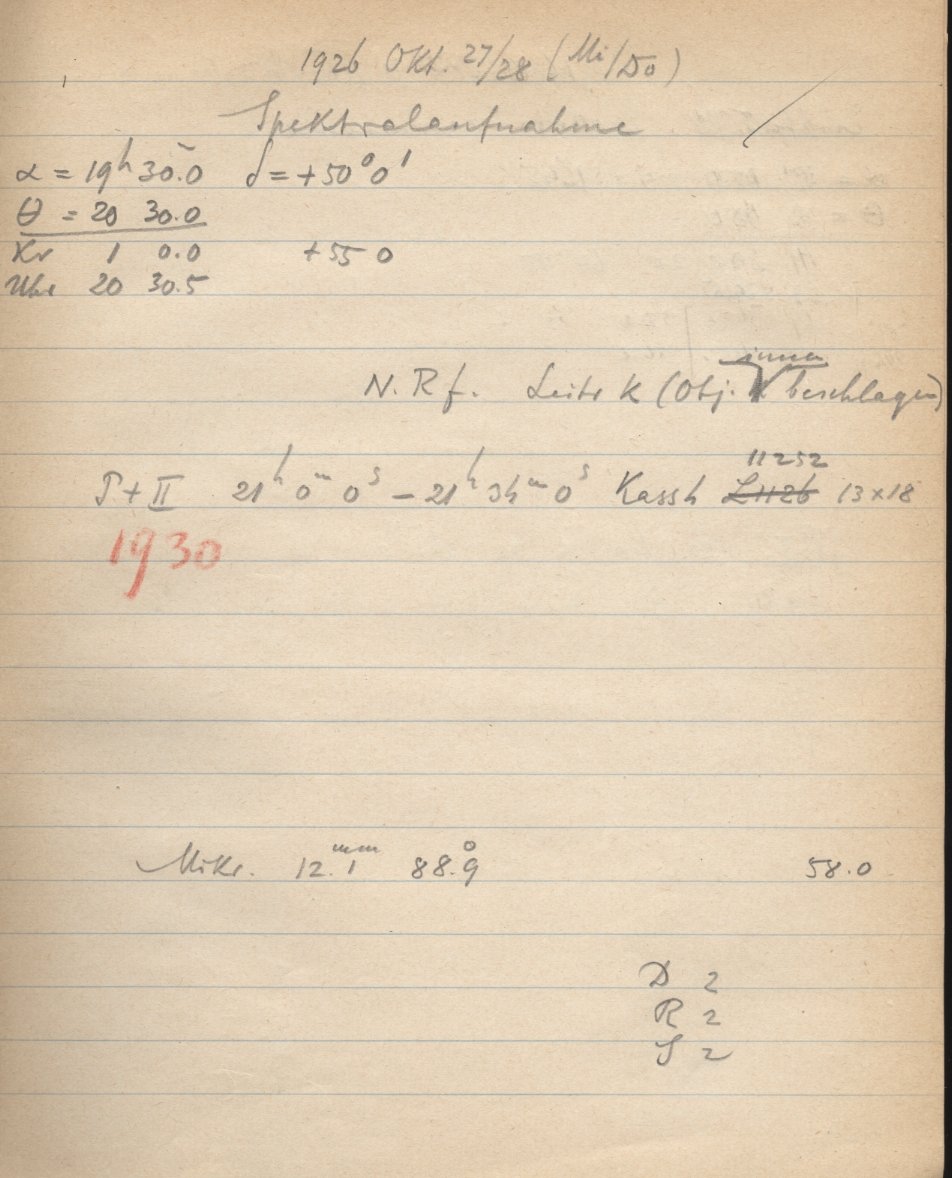 1926 Okt. 27/28 (Mi/Do)
Spektralaufnahme
α = 19h 30.0 δ = +50° 0'
θ = 20 30.0
Kr 1 0.0 +55 0
Uhr 20 30.5
innen
N. Rf. Leitr K (Obj. beschlagen)
11252
P + II 21h 0m 0s – 21h 34m 0s Kass h L1126 13×18
1930
Mikr. 12.1mm 88.9° 58.0
D 2
R 2
S 2